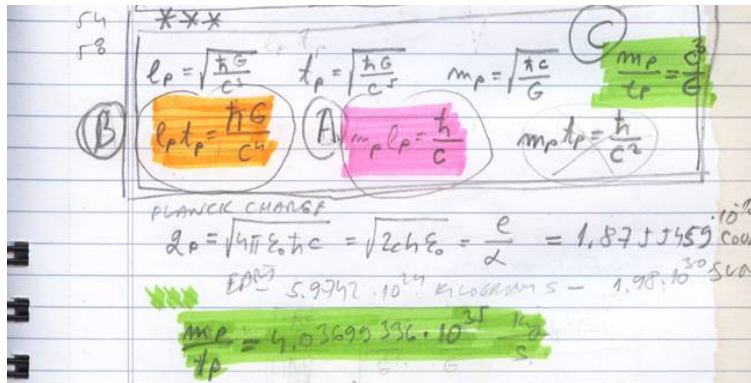 54 ***
58 C
lp = √(ħG/c³) tp = √(ħG/c⁵) mp = √(ħc/G) mp/tp = c³/G
B lp tp = ħG/c⁴ A mp lp = ħ/c mp tp = ħ/c²
PLANCK CHARGE
qp = √(4πε₀ħc) = √(2chε₀) = e/α = 1,8755459 · 10
5.9742 · 10²⁴ KILOGRAMS – 1.98 · 10³⁰
mp/tp = 4,03699336 · 10³⁵ kg/s